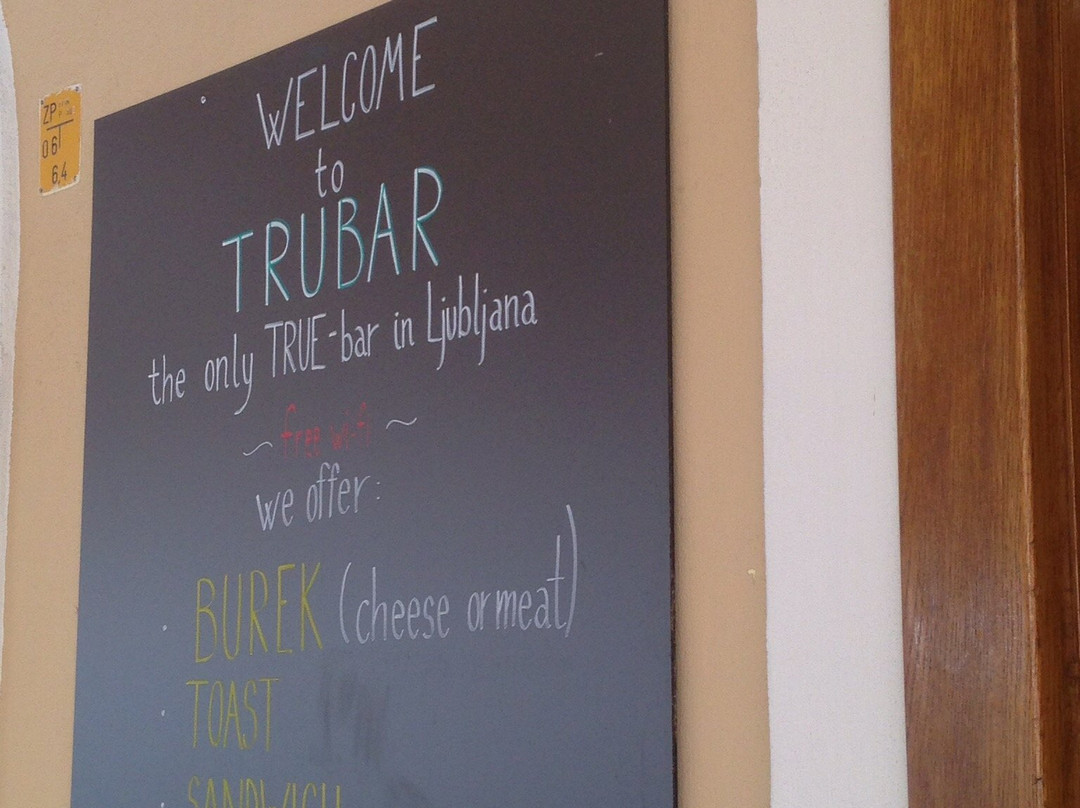 ZP
06
6,4
WELCOME
to
TRUBAR
the only TRUE-bar in Ljubljana
~ free wi-fi ~
we offer:
· BUREK (cheese or meat)
· TOAST
· SANDWICH